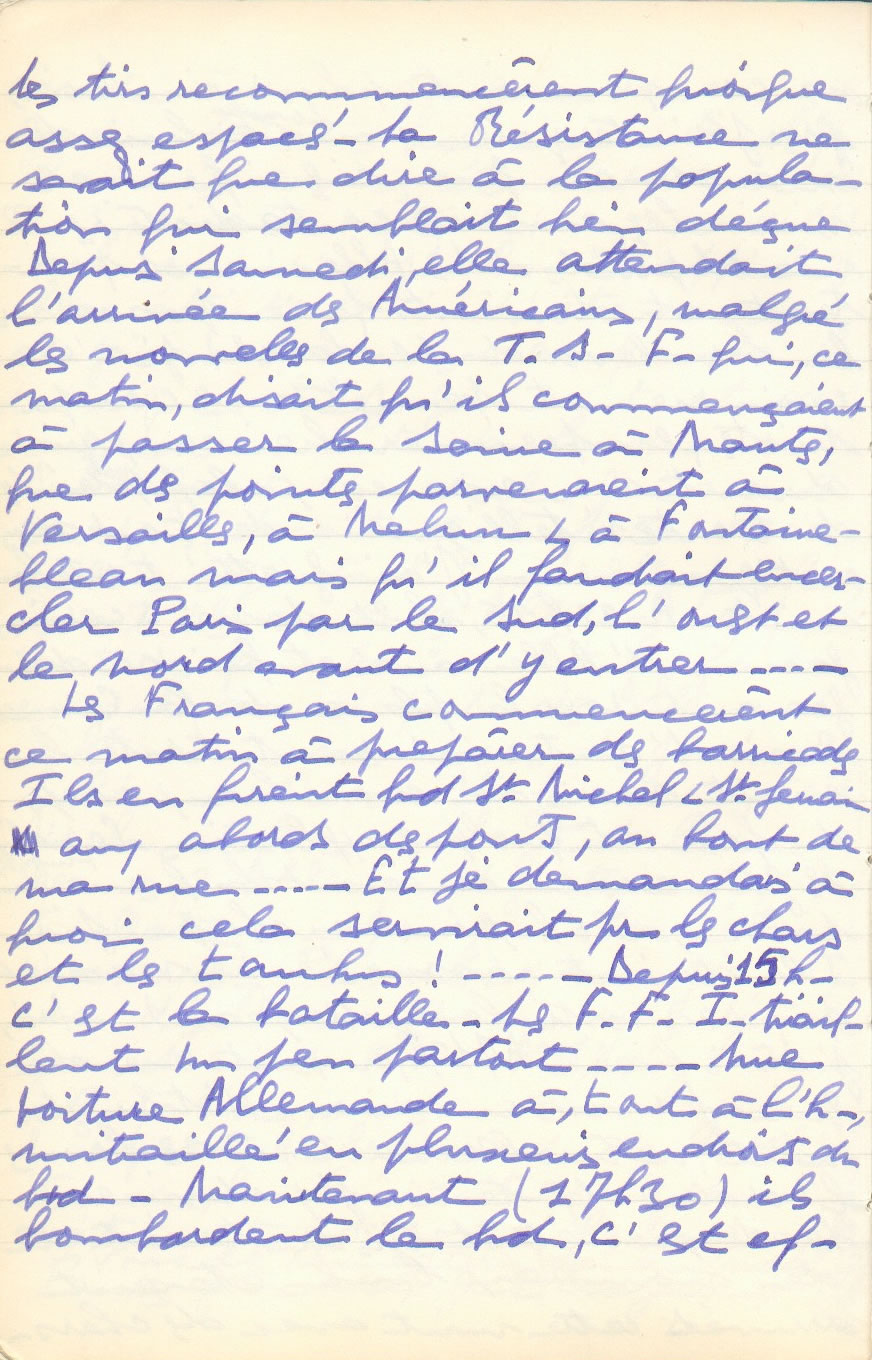 les tirs recommencèrent quoique
assez espacés - La Résistance ne
savait que dire à la popula-
tion qui semblait bien déçue
Depuis samedi, elle attendait
l'arrivée des Américains, malgré
les nouvelles de la T. S. F. qui, ce
matin, disait qu'ils commençaient
à passer la Seine à Mantes,
que des pointes parvenaient à
Versailles, à Melun & à Fontaine-
bleau mais qu'il faudrait encer-
cler Paris par le sud, l'ouest et
le nord avant d'y entrer ----
Les Français commencèrent
ce matin à préparer des barricades
Ils en firent bd St Michel & St Germain
aux abords des ponts, au bout de
ma rue ---- Et je demandais à
quoi cela servirait pr les chars
et les tanks ! ----- Depuis 15 h-
c'est la bataille - Les F. F. I - tirail-
lent un peu partout ---- une
voiture Allemande a, tout à l'h-,
mitraillé en plusieurs endroits du
bd - Maintenant (17h30) ils
bombardent le bd, c'est ef-